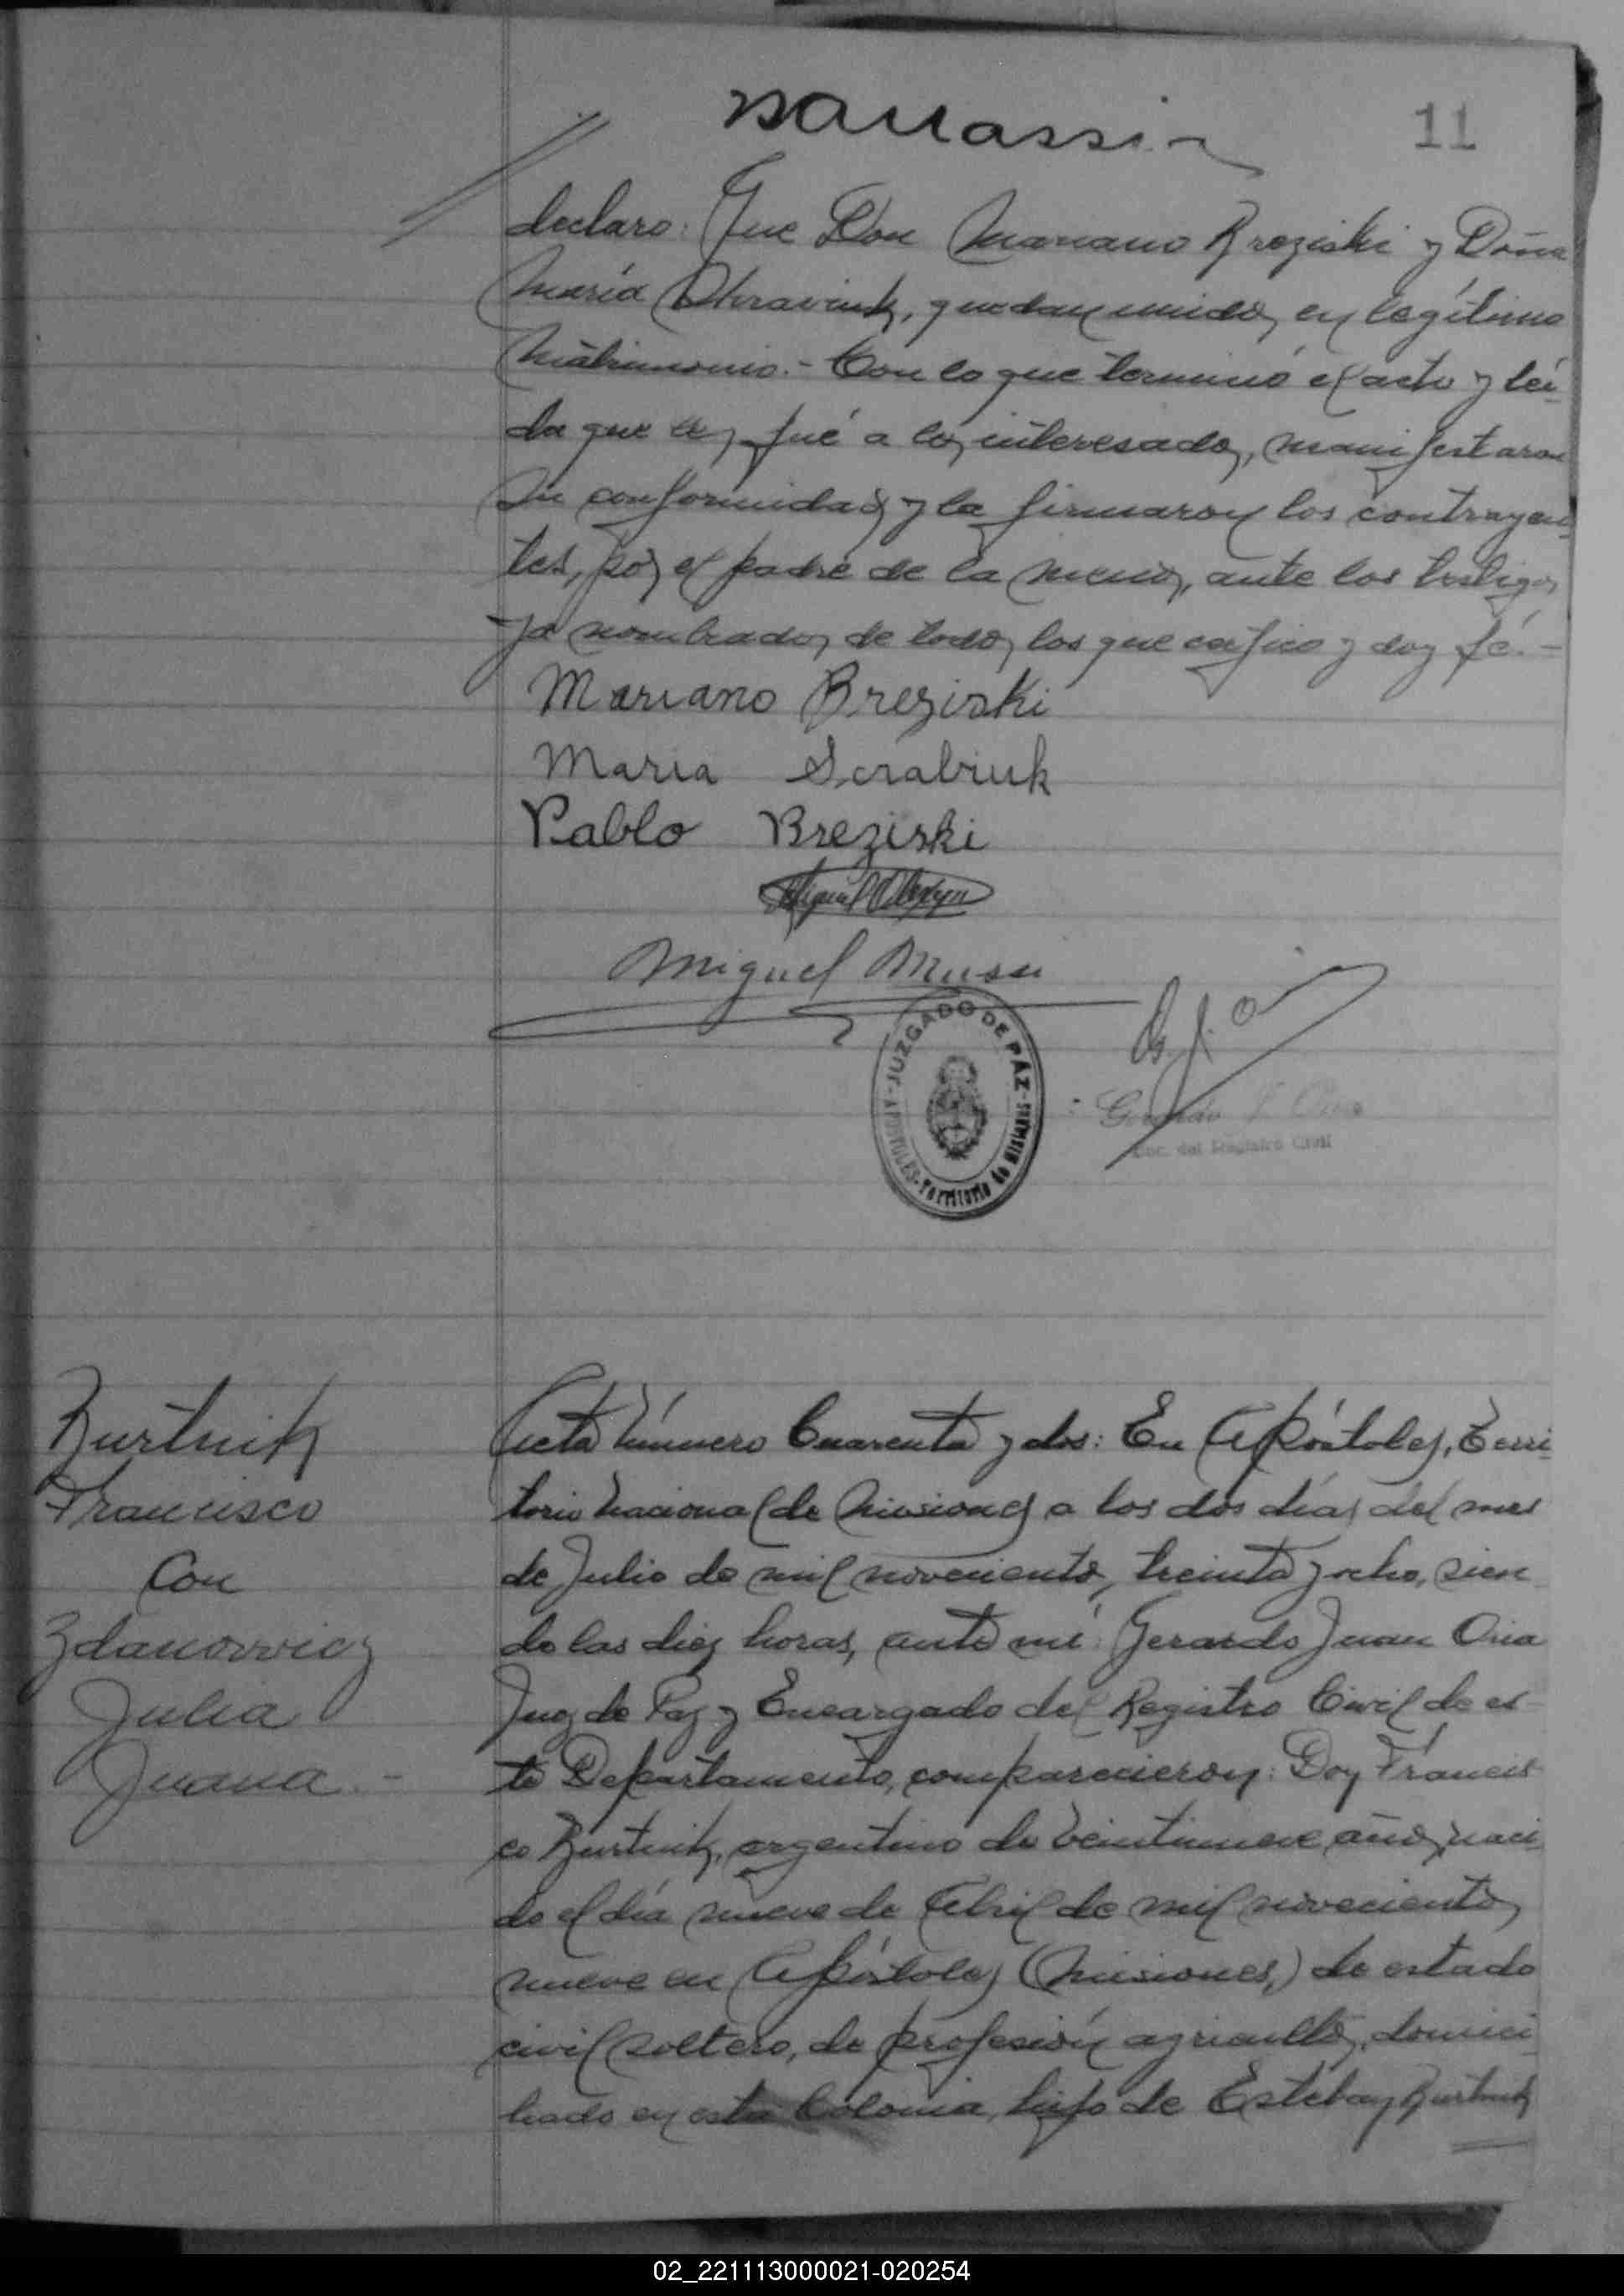 11
declaro: Que Don Mariano Breziski y Doña
María quedan unidos en legítimo
Matrimonio.- Con lo que terminó el acto y leí-
da que les fué a los interesados, manifestaron
su conformidad y la firmaron los contrayen-
tes, por el padre de la menor, ante los testigos
ya nombrados, de todos los que certifico y doy fé.-
Mariano Breziski
Maria Scrabiuk
Pablo Breziski
Miguel
Miguel Musu
JUZGADO DE PAZ - APOSTOLES - Territorio de Misiones
Enc. del Registro Civil
Kurtnik
Francisco
Con
Zdanovvicz
Julia
Juana.-
Acta Número Cuarenta y dos: En Apóstoles, Terri-
torio Nacional de Misiones a los dos días del mes
de Julio de mil novecientos treinta y ocho, sien-
do las diez horas, ante mí: Gerardo Juan Oria
Juez de Paz y Encargado del Registro Civil de es-
te Departamento, comparecieron: Don Francis-
co Kurtnik, argentino de veintinueve años, naci-
do el día nueve de Abril de mil novecientos
nueve en Apóstoles (Misiones,) de estado
civil soltero, de profesión agricultor, domici-
liado en esta Colonia, hijo de Estéban Kurtnik
02_221113000021-020254